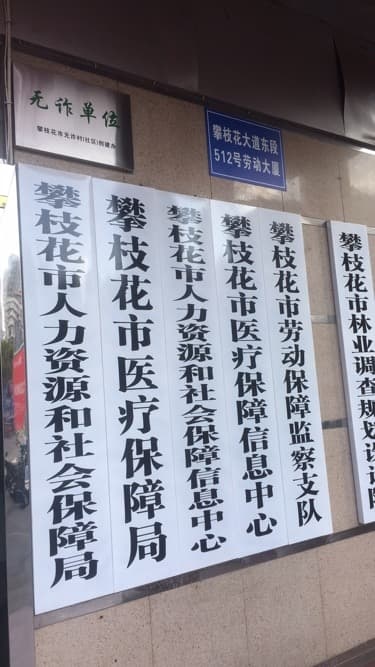 无诈单位
攀枝花市无诈村(社区)创建办
攀枝花大道东段
512号劳动大厦
攀枝花市人力资源和社会保障局
攀枝花市医疗保障局
攀枝花市人力资源和社会保障信息中心
攀枝花市医疗保障信息中心
攀枝花市劳动保障监察支队
攀枝花市林业调查规划设计院